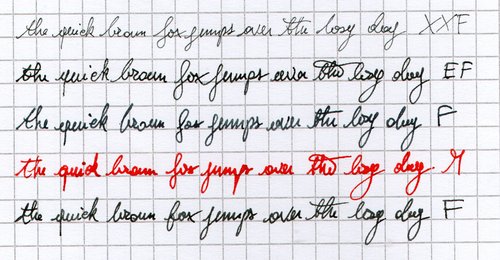 the quick brown fox jumps over the lazy dog XXF
the quick brown fox jumps over the lazy dog EF
the quick brown fox jumps over the lazy dog F
the quick brown fox jumps over the lazy dog. M
the quick brown fox jumps over the lazy dog F